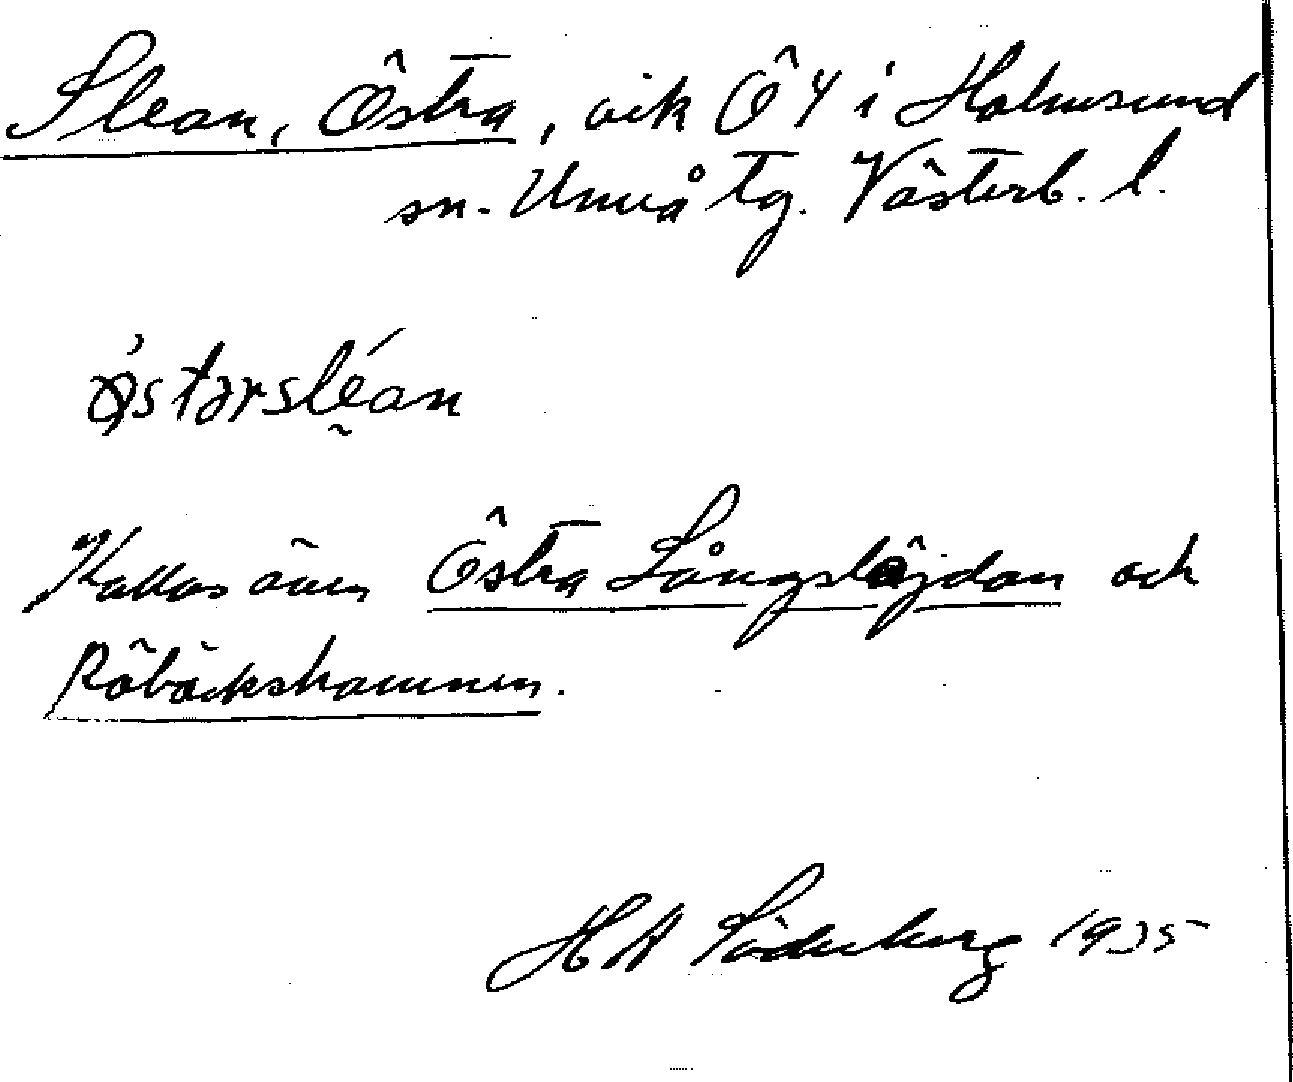 Slean, Östra, vik Ö 4 i Holmsund
sn. Umeå tg. Västerb. l.
östərsléan
Kallas även Östra Långslöjdan och
Röbäckshamnen.
H A Söderberg 1935